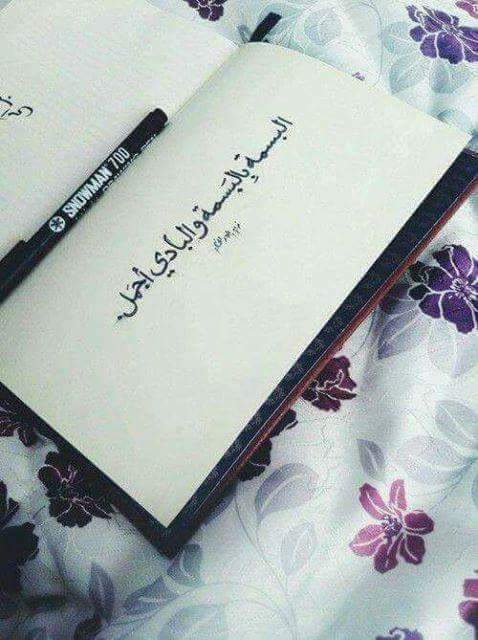 البسمةِ بِالبَسمة والبادي أجمَل.
SNOWMAN 700